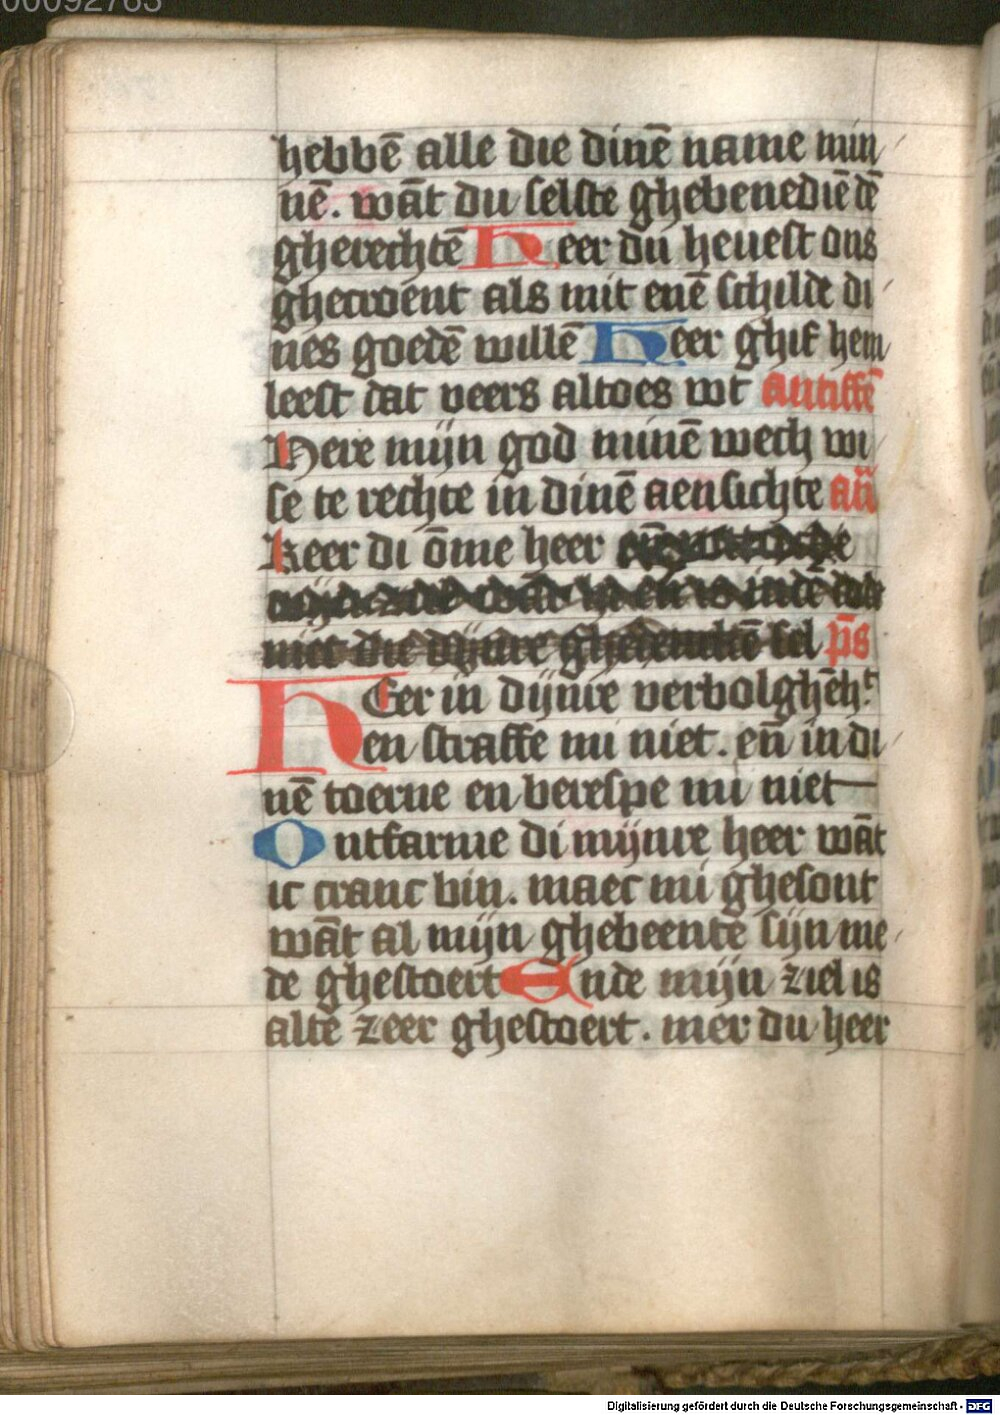 00092763
hebbē alle die dinē name min
nē. wāt du selste ghebenediē dē
gherechtē Heer du heuest ons
ghecroent als mit enē schilde di
nes goedē willē Heer ghif hem
leest dat veers altoes wt antiffē
Here mijn god minē wech wi
se te rechte in dinē aensichte añ
Keer di ōme heer
niet die dijnre ghedenckē sel p̄s
HEer in dijnre verbolghēh.t
en straffe mi niet. eñ in di
nē toerne en berespe mi niet
Ontfarme di mijnre heer wāt
ic cranc bin. maec mi ghesont
wāt al mijn ghebeente sijn me
de ghestoert Ende mijn ziel is
alte zeer ghestoert. mer du heer
Digitalisierung gefördert durch die Deutsche Forschungsgemeinschaft - DFG